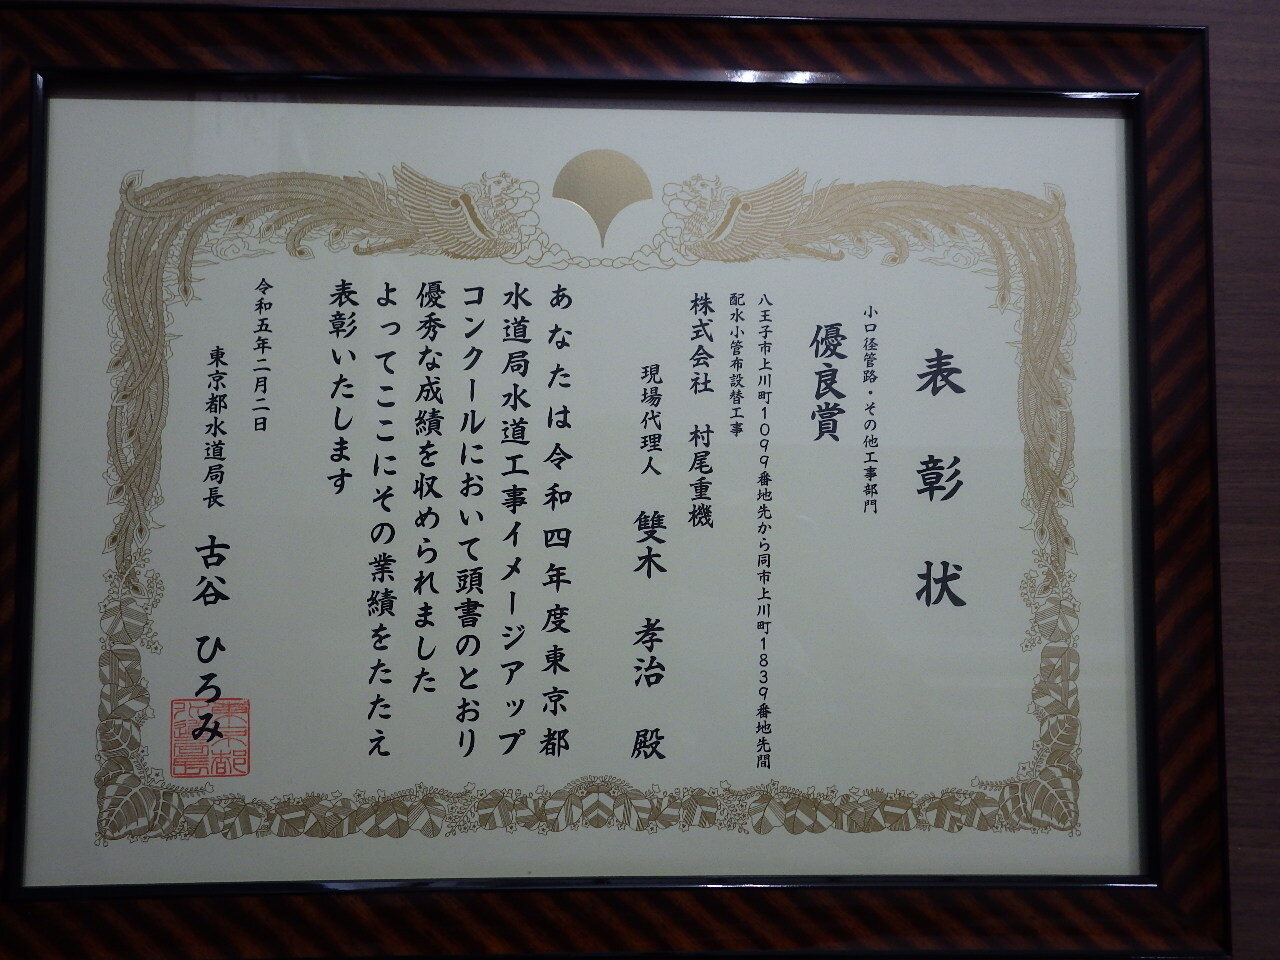 表彰状
小口径管路・その他工事部門
優良賞
八王子市上川町1099番地先から同市上川町1839番地先間
配水小管布設替工事
株式会社 村尾重機
現場代理人 雙木 孝治 殿
あなたは令和四年度東京都
水道局水道工事イメージアップ
コンクールにおいて頭書のとおり
優秀な成績を収められました
よってここにその業績をたたえ
表彰いたします
令和五年二月二日
東京都水道局長 古谷 ひろみ